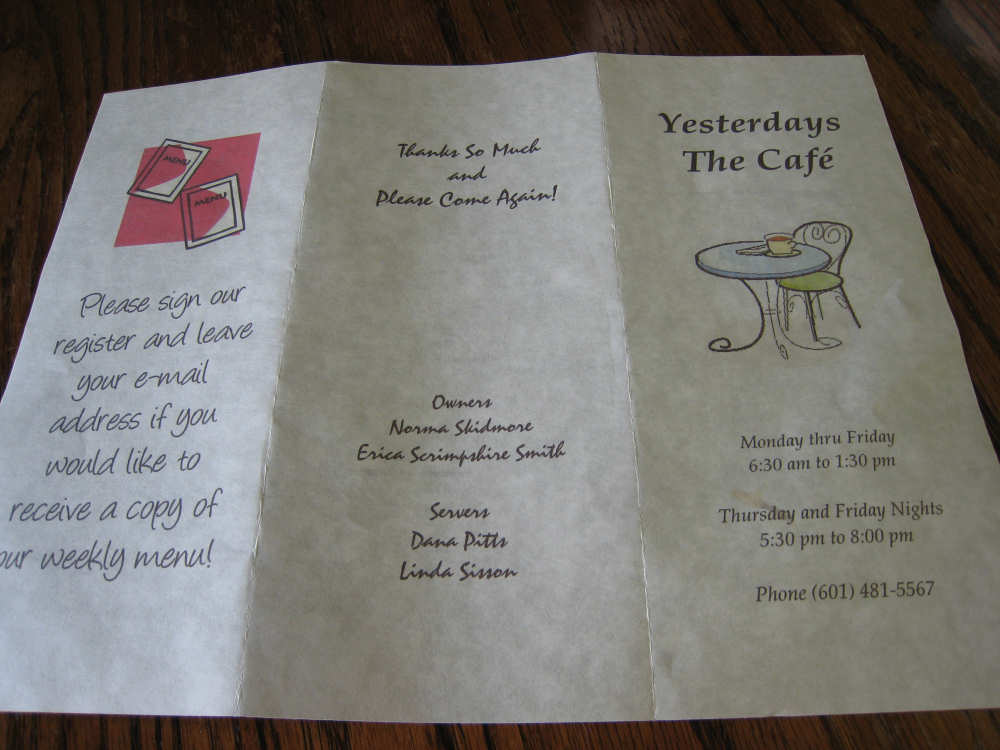 MENU
MENU
Please sign our
register and leave
your e-mail
address if you
would like to
receive a copy of
our weekly menu!
Thanks So Much
and
Please Come Again!
Owners
Norma Skidmore
Erica Scrimpshire Smith
Servers
Dana Pitts
Linda Sisson
Yesterdays
The Café
Monday thru Friday
6:30 am to 1:30 pm
Thursday and Friday Nights
5:30 pm to 8:00 pm
Phone (601) 481-5567